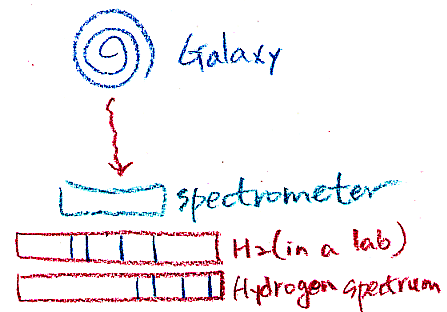 Galaxy
spectrometer
H2 (in a lab)
Hydrogen spectrum